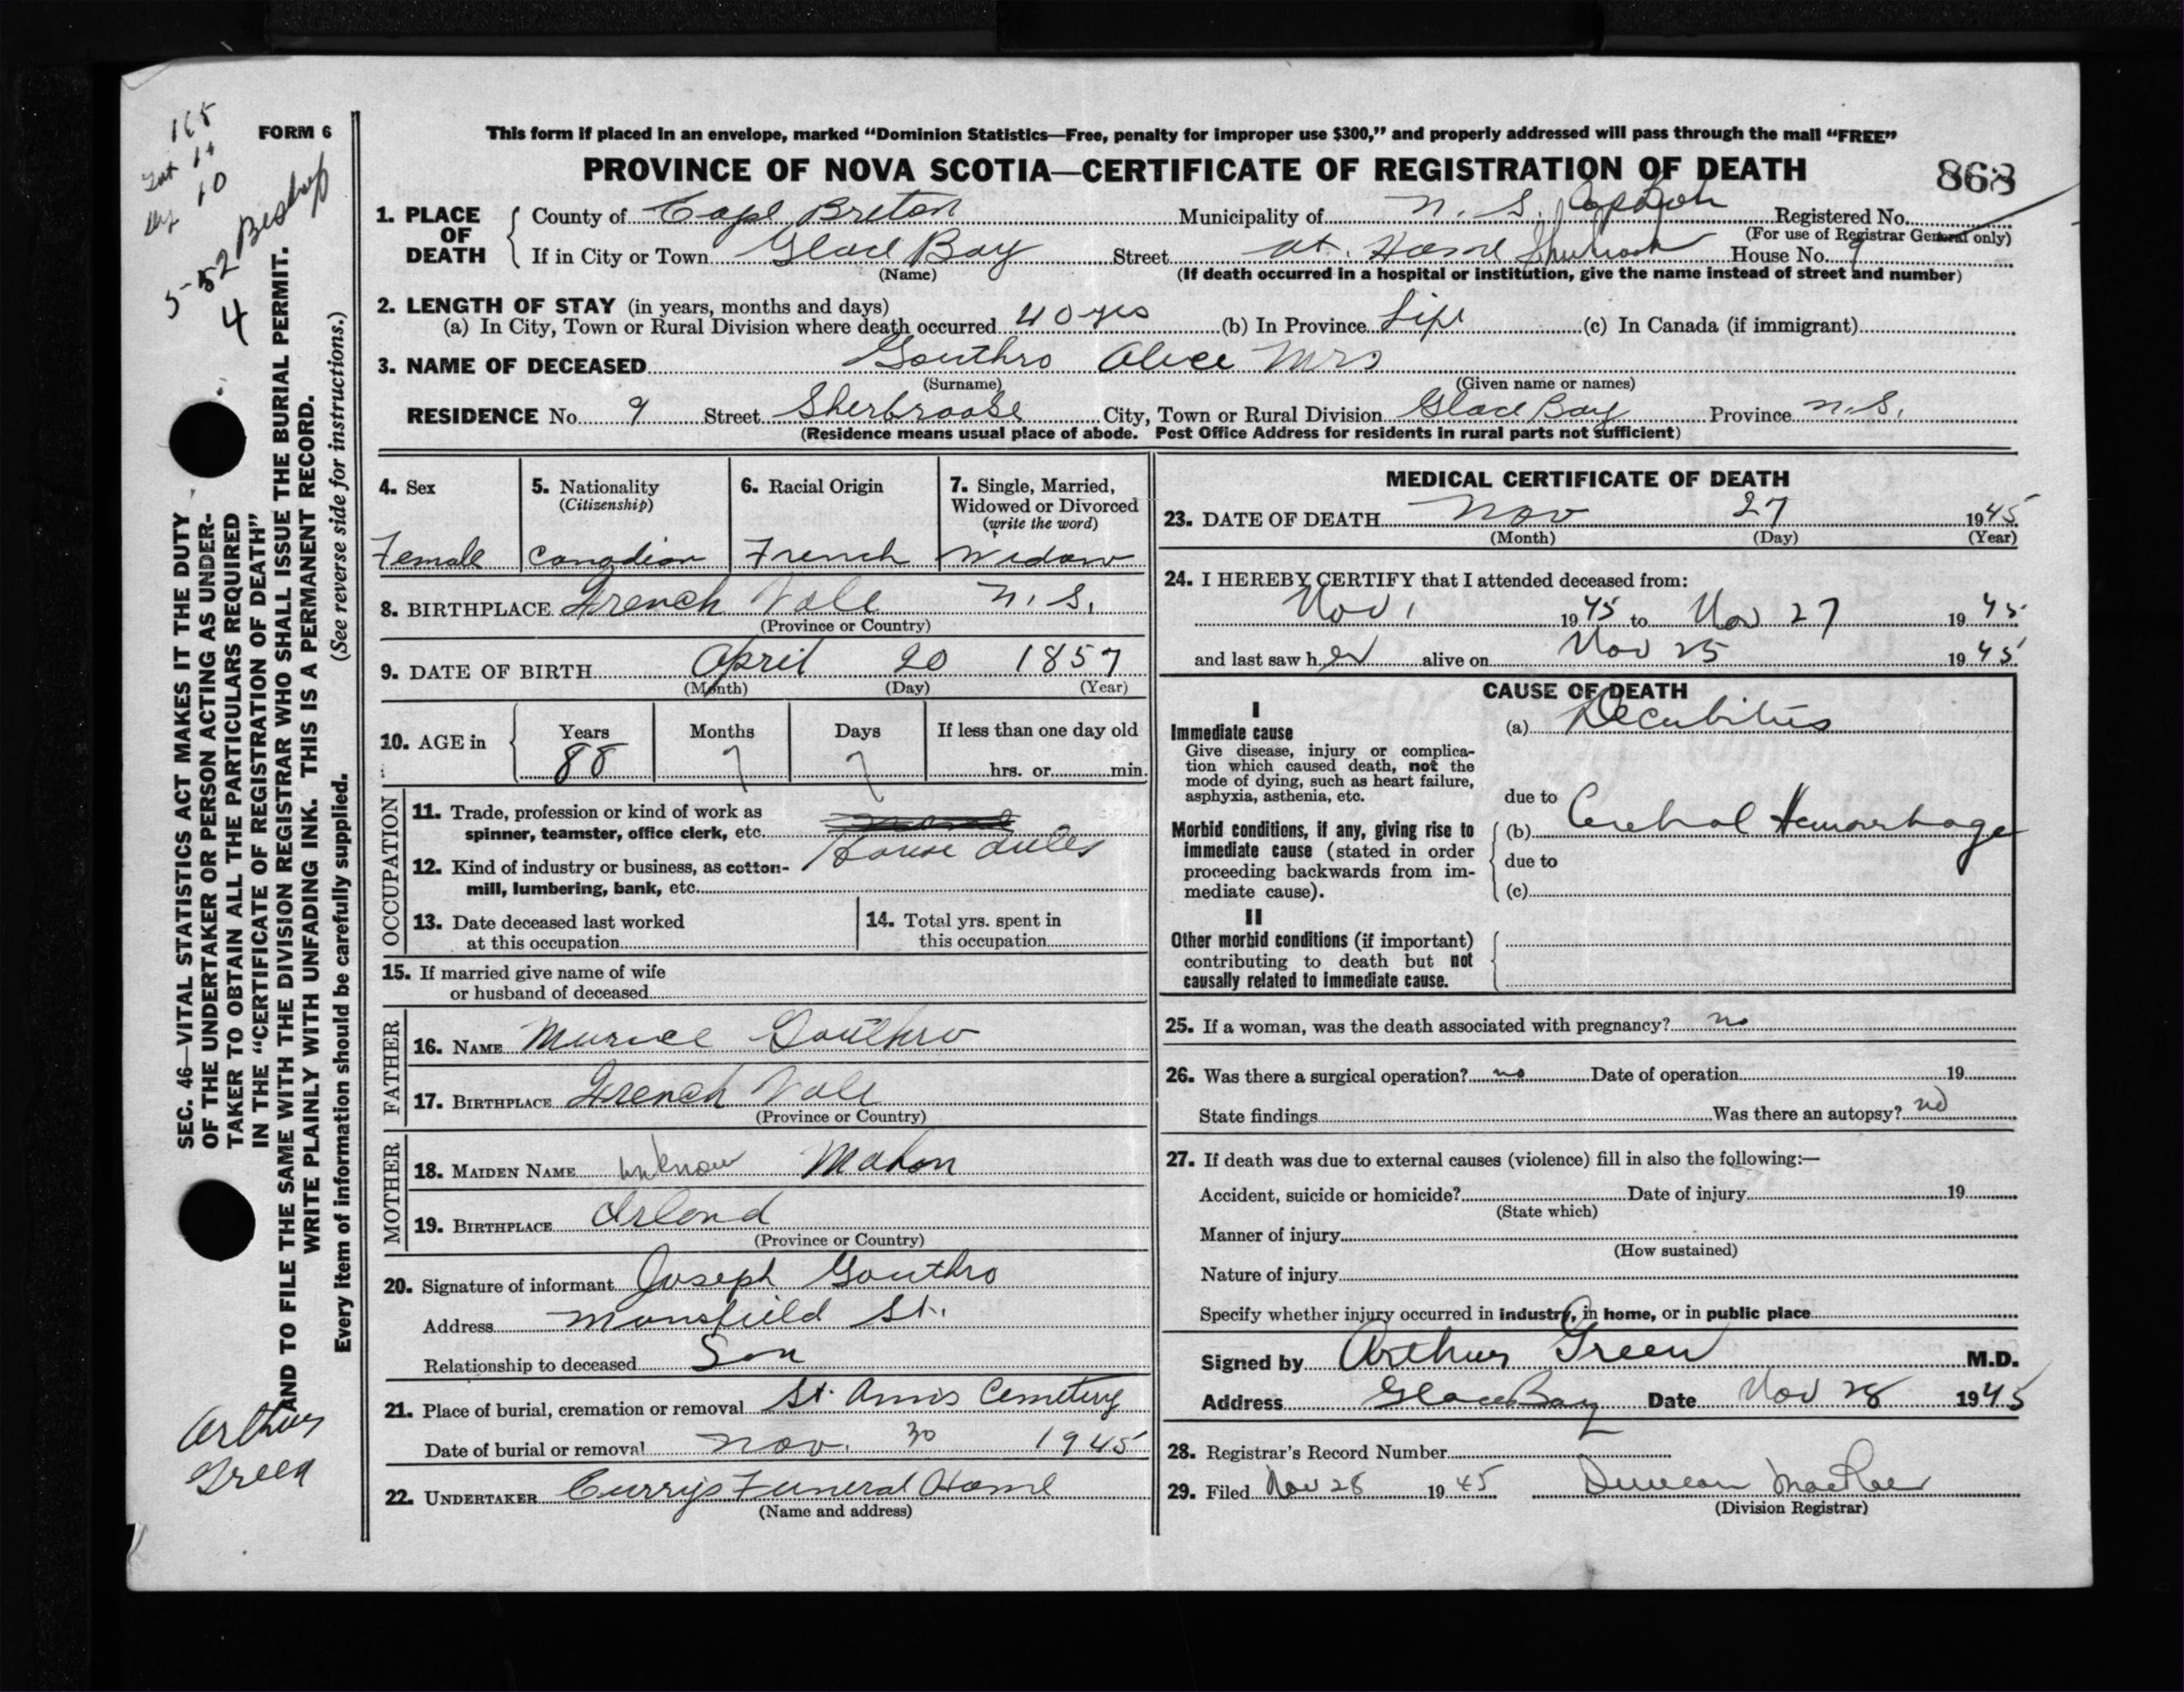 165
10
5-82
4
FORM 6
SEC. 46—VITAL STATISTICS ACT MAKES IT THE DUTY
OF THE UNDERTAKER OR PERSON ACTING AS UNDER-
TAKER TO OBTAIN ALL THE PARTICULARS REQUIRED
IN THE "CERTIFICATE OF REGISTRATION OF DEATH"
AND TO FILE THE SAME WITH THE DIVISION REGISTRAR WHO SHALL ISSUE THE BURIAL PERMIT.
WRITE PLAINLY WITH UNFADING INK. THIS IS A PERMANENT RECORD.
Every item of information should be carefully supplied. (See reverse side for instructions.)
Arthur
Green
This form if placed in an envelope, marked "Dominion Statistics—Free, penalty for improper use $300," and properly addressed will pass through the mail "FREE"
PROVINCE OF NOVA SCOTIA—CERTIFICATE OF REGISTRATION OF DEATH
868
1. PLACE OF DEATH County of Cape Breton Municipality of N. S. Registered No.
(For use of Registrar General only)
If in City or Town Glace Bay Street at Home House No. 9
(Name) (If death occurred in a hospital or institution, give the name instead of street and number)
2. LENGTH OF STAY (in years, months and days)
(a) In City, Town or Rural Division where death occurred 40 yrs (b) In Province Life (c) In Canada (if immigrant)
3. NAME OF DECEASED Gouthro Alice Mrs
(Surname) (Given name or names)
RESIDENCE No. 9 Street Sherbrooke City, Town or Rural Division Glace Bay Province N.S.
(Residence means usual place of abode. Post Office Address for residents in rural parts not sufficient)
4. Sex
Female
5. Nationality
(Citizenship)
Canadian
6. Racial Origin
French
7. Single, Married,
Widowed or Divorced
(write the word)
Widow
8. BIRTHPLACE French Vale N.S.
(Province or Country)
9. DATE OF BIRTH April 20 1857
(Month) (Day) (Year)
10. AGE in Years Months Days If less than one day old
88 7 7 hrs. or min.
OCCUPATION
11. Trade, profession or kind of work as
spinner, teamster, office clerk, etc.
House duties
12. Kind of industry or business, as cotton-
mill, lumbering, bank, etc.
13. Date deceased last worked
at this occupation
14. Total yrs. spent in
this occupation
15. If married give name of wife
or husband of deceased
FATHER
16. NAME Gouthro
17. BIRTHPLACE French Vale
(Province or Country)
MOTHER
18. MAIDEN NAME unknow Mahon
19. BIRTHPLACE Irland
(Province or Country)
20. Signature of informant Joseph Gouthro
Address Mansfield St.
Relationship to deceased Son
21. Place of burial, cremation or removal St. Anns Cemetery
Date of burial or removal Nov. 30 1945
22. UNDERTAKER Currys Funeral Home
(Name and address)
MEDICAL CERTIFICATE OF DEATH
23. DATE OF DEATH Nov 27 1945
(Month) (Day) (Year)
24. I HEREBY CERTIFY that I attended deceased from:
Nov 1 1945 to Nov 27 1945
and last saw her alive on Nov 25 1945
CAUSE OF DEATH
I
Immediate cause
Give disease, injury or complica-
tion which caused death, not the
mode of dying, such as heart failure,
asphyxia, asthenia, etc.
(a) Decubitus
due to
Morbid conditions, if any, giving rise to
immediate cause (stated in order
proceeding backwards from im-
mediate cause).
(b) Cerebral Hemorrhage
due to
(c)
II
Other morbid conditions (if important)
contributing to death but not
causally related to immediate cause.
25. If a woman, was the death associated with pregnancy? no
26. Was there a surgical operation? no Date of operation 19
State findings Was there an autopsy? no
27. If death was due to external causes (violence) fill in also the following:—
Accident, suicide or homicide? Date of injury 19
(State which)
Manner of injury
(How sustained)
Nature of injury
Specify whether injury occurred in industry, in home, or in public place
Signed by Arthur Green M.D.
Address Glace Bay Date Nov 28 1945
28. Registrar's Record Number
29. Filed Nov 28 1945 Duncan MacRae
(Division Registrar)